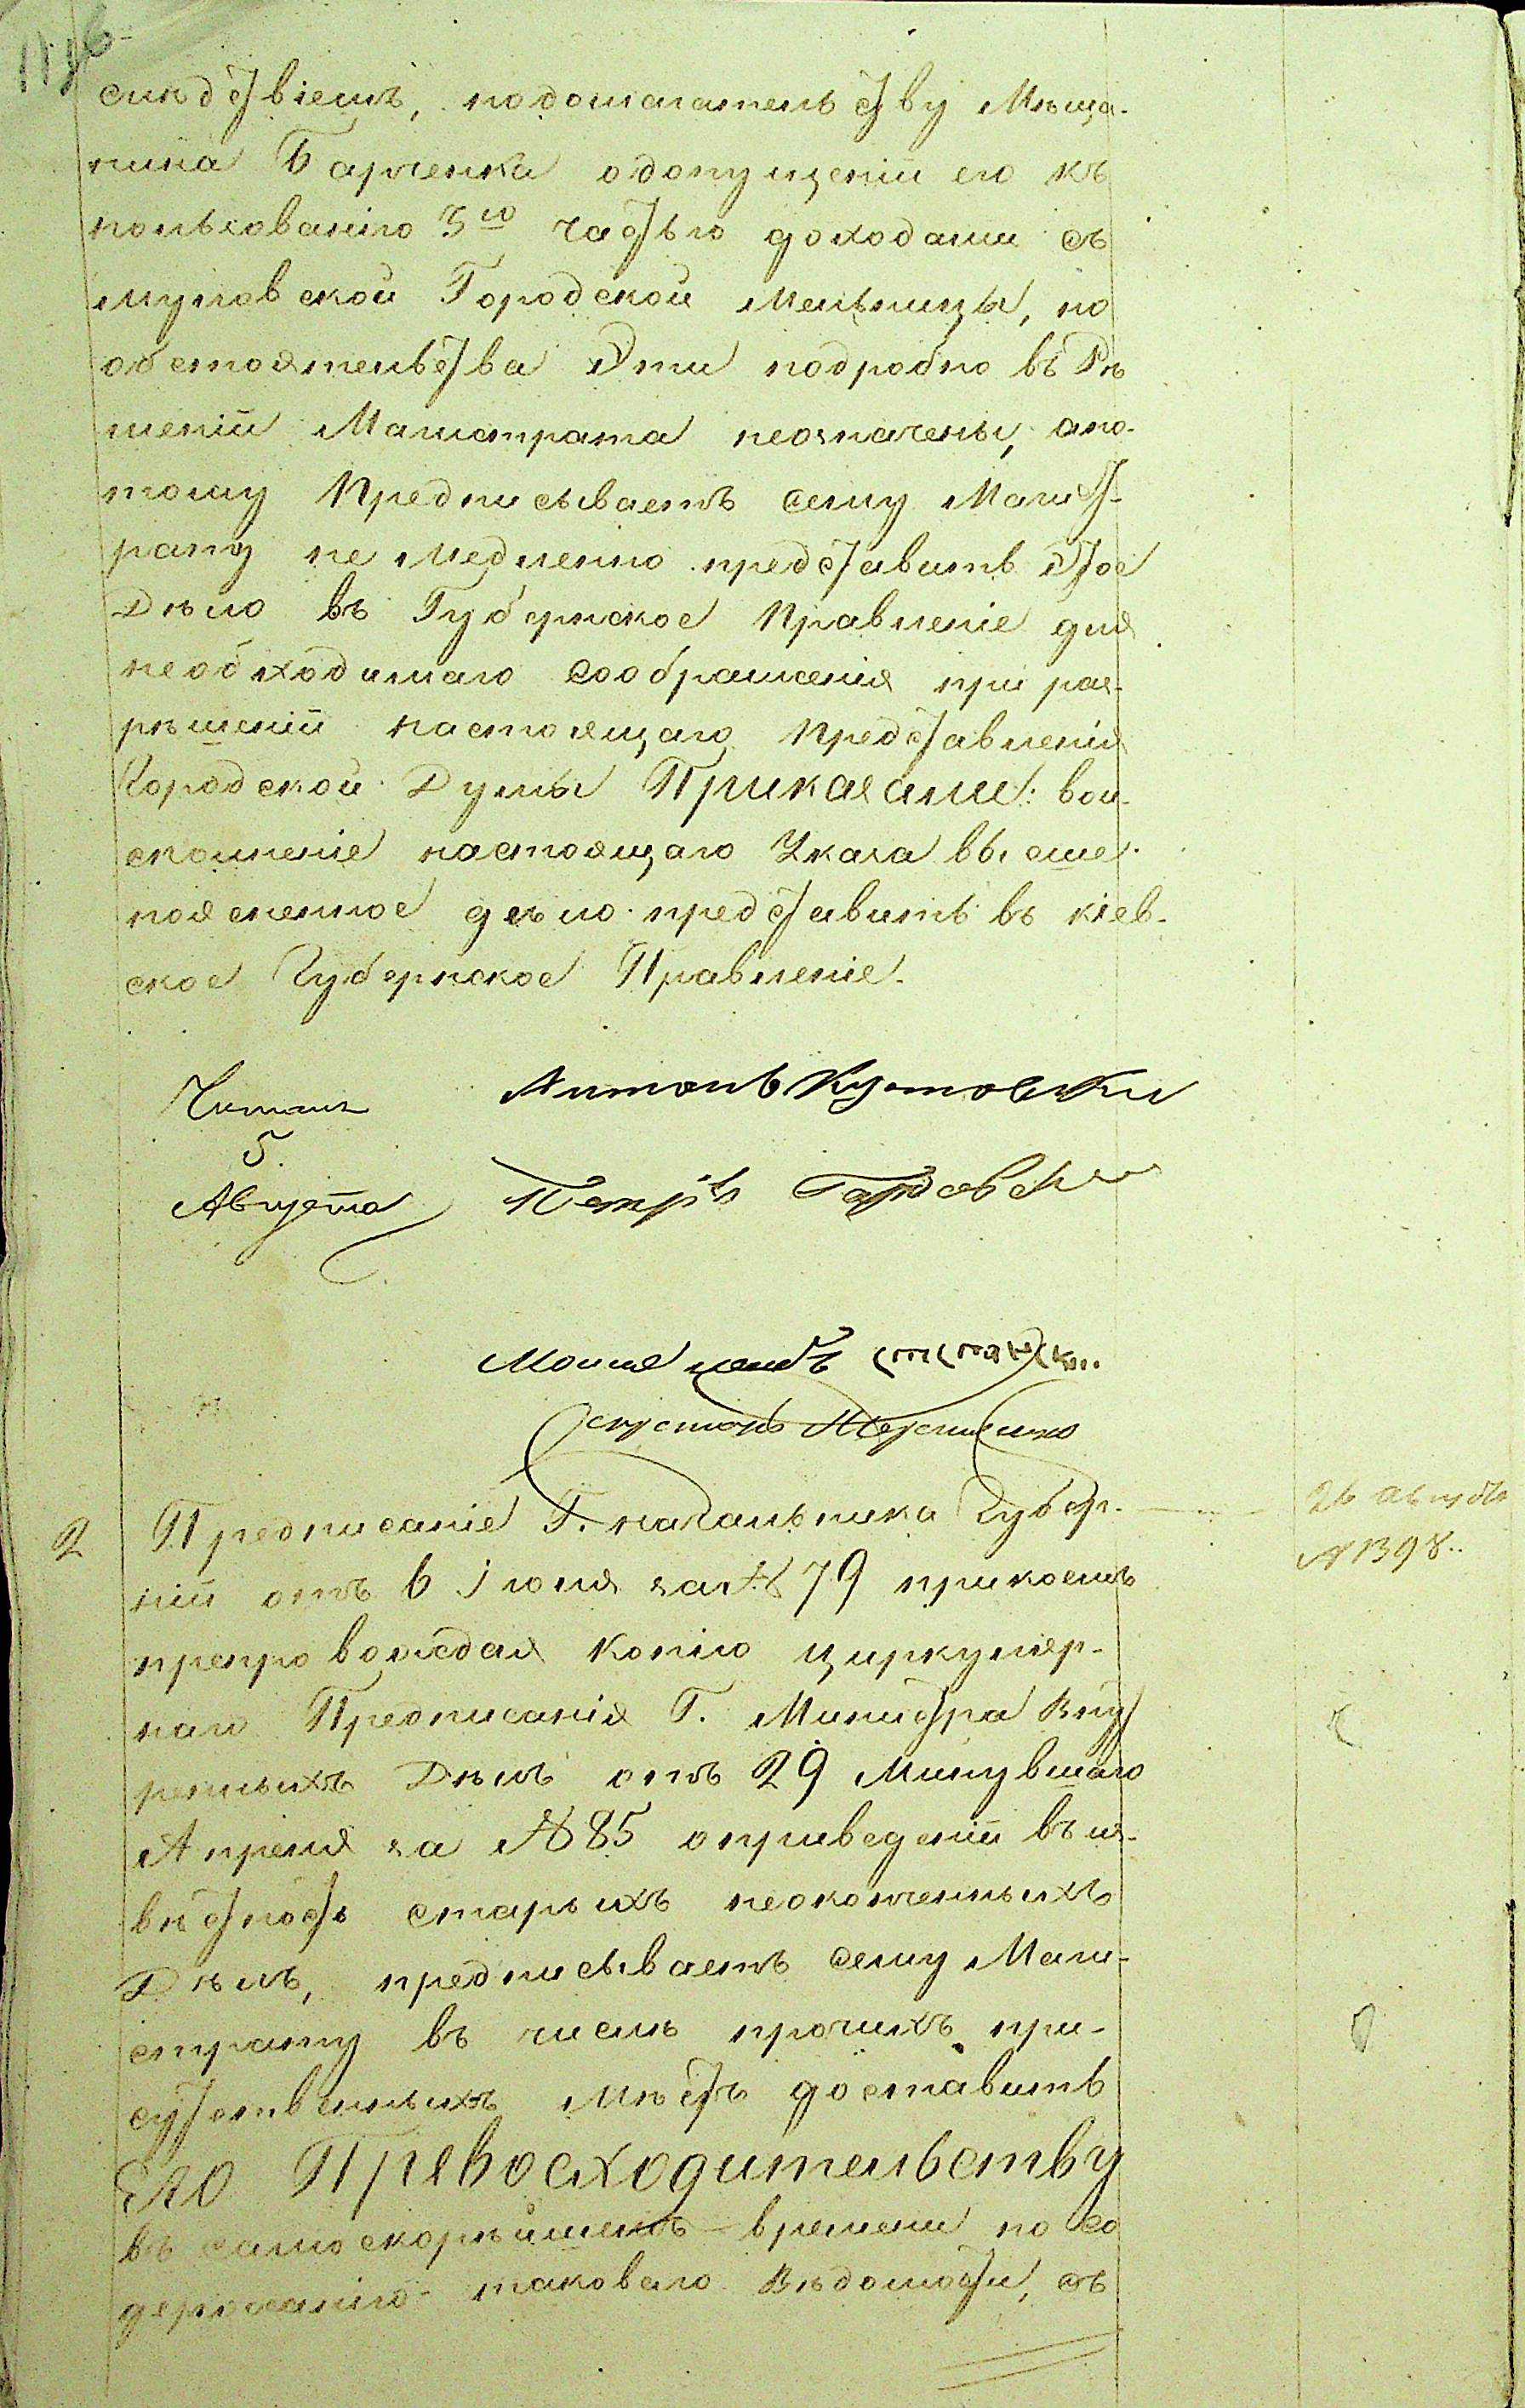 слѣдствіемъ, подомагательству Мѣща-
нина Барченка одопущеніи его къ
пользованію 3ю частью доходами съ
Городской Мельницы, но
обстоятельства Эти подробно въ Рѣ
шеніи Магистрата неозначены, апо-
тому Предписываетъ сему Магист-
рату не Медленно представить Этое
Дѣло въ Губернское Правленіе для
необходимаго Соображенія при раз-
рѣшеніи настоящаго Представленія
Городской Думы Приказали: воис-
полненіе настоящаго Указа выше
поясненное дѣло представить въ кіев-
ское Губернское Правленіе.
Читалъ Антонъ
5.
Августа Петръ
2 Предписаніе Г. начальника Губер-
ніи отъ 6 Іюля за № 79 прикоемъ
препровождая Копію циркуляр-
наго Предписанія Г. Министра Внут
реннихъ Дѣлъ отъ 29 Минувшаго
Апреля за № 85 оприведеніи въиз-
вѣстность старыхъ неоконченныхъ
Дѣлъ, предписываетъ сему Маги-
страту въ числѣ прочихъ при-
сутственныхъ Мѣстъ доставить
Его Превосходительству
въ самоскорѣйшемъ времени по со
держанію таковаго Вѣдомости, съ
26 августа
№ 1398